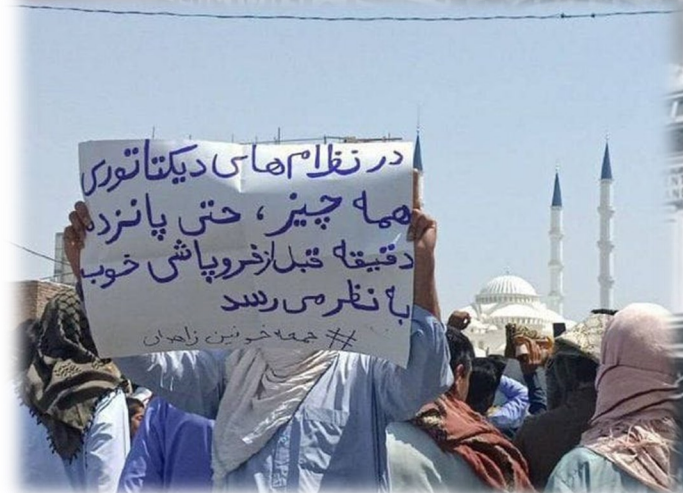 در نظام های دیکتاتوری
همه چیز، حتی پانزده
دقیقه قبل از فروپاشی خوب
به نظر می رسد
# جمعه خونین زاهدان